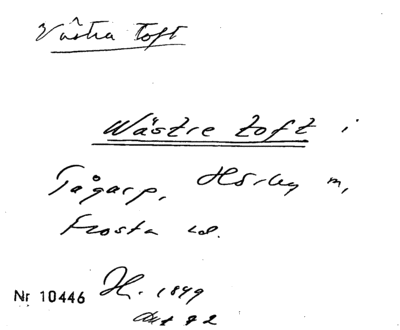 Västra Toft
Wästre toft i
Tågarp, Hörby m,
Frosta hd.
Nr 10446 H. 1849